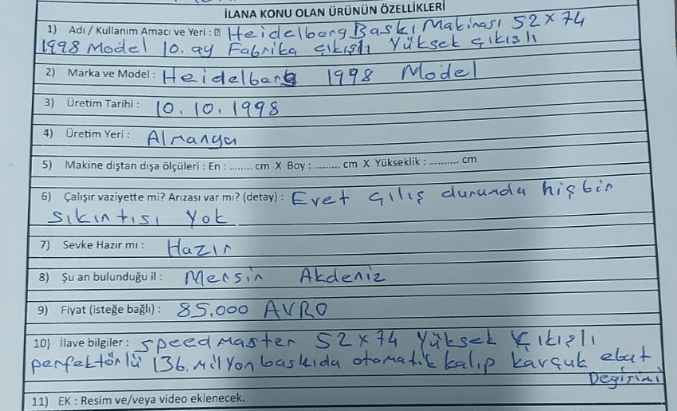 İLANA KONU OLAN ÜRÜNÜN ÖZELLİKLERİ
1) Adı / Kullanım Amacı ve Yeri : Heidelberg Baskı Makinası 52 x 74
1998 Model 10. ay Fabrika çıkışlı Yüksek çıkışlı
2) Marka ve Model : Heidelberg 1998 Model
3) Üretim Tarihi : 10.10.1998
4) Üretim Yeri : Almanya
5) Makine dıştan dışa ölçüleri : En : ........ cm X Boy : ......... cm X Yükseklik : .......... cm
6) Çalışır vaziyette mi? Arızası var mı? (detay) : Evet çılış durunda hiçbir
sıkıntısı Yok
7) Sevke Hazır mı : Hazır
8) Şu an bulunduğu il : Mersin Akdeniz
9) Fiyat (isteğe bağlı) : 85.000 AVRO
10) İlave bilgiler : Speed Master 52 x 74 Yüksek Çıkışlı
perfektörlü 136. milyon baskıda otomatik kalıp kavçuk ebat
Değişimi
11) EK : Resim ve/veya video eklenecek.